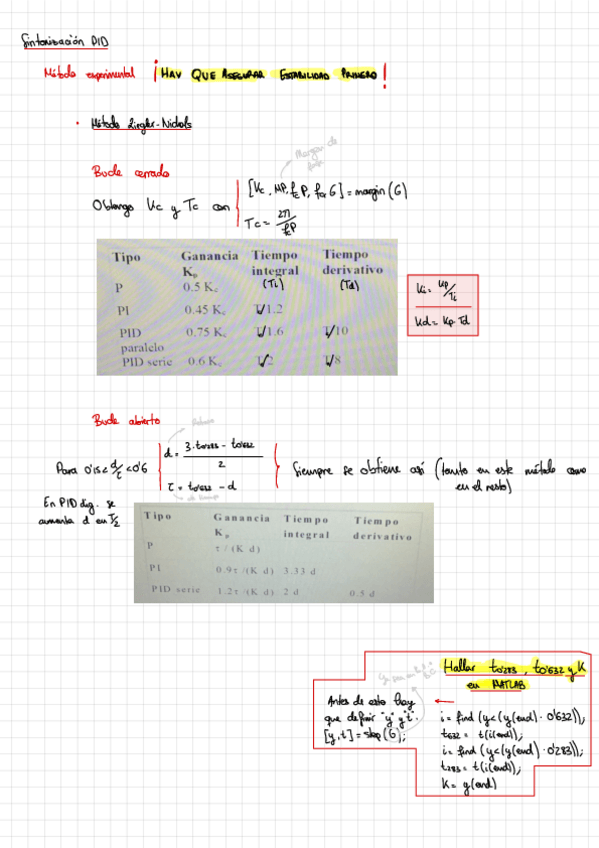 Sintonización PID
Método experimental ¡HAY QUE ASEGURAR ESTABILIDAD PRIMERO!
• Método Ziegler-Nichols
Margen de
fase
Bucle cerrado
[Kc, MP, fcP, fcG] = margin(G)
Obtengo Kc y Tc con
Tc = 2π/fcP
Tipo Ganancia Kp Tiempo integral (Ti) Tiempo derivativo (Td)
P 0.5 Kc
PI 0.45 Kc T/1.2
PID paralelo 0.75 Kc T/1.6 T/10
PID serie 0.6 Kc T/2 T/8
Ki = Kp/Ti
Kd = Kp·Td
Bucle abierto
d = (3·t0'283 - t0'632)/2
Para 0'15<d/τ<0'6
τ = t0'632 - d
Siempre se obtiene así (tanto en este método como
en el resto)
En PID dig. se
aumenta d en T/2
Tipo Ganancia Kp Tiempo integral Tiempo derivativo
P τ / (K d)
PI 0.9τ / (K d) 3.33 d
PID serie 1.2τ / (K d) 2 d 0.5 d
Hallar t0'283, t0'632 y K
en MATLAB
Antes de esto hay
que definir "y" y "t":
[y,t] = step(G);
i = find (y<(y(end)·0'632));
t632 = t(i(end));
i = find (y<(y(end)·0'283));
t283 = t(i(end));
K = y(end)